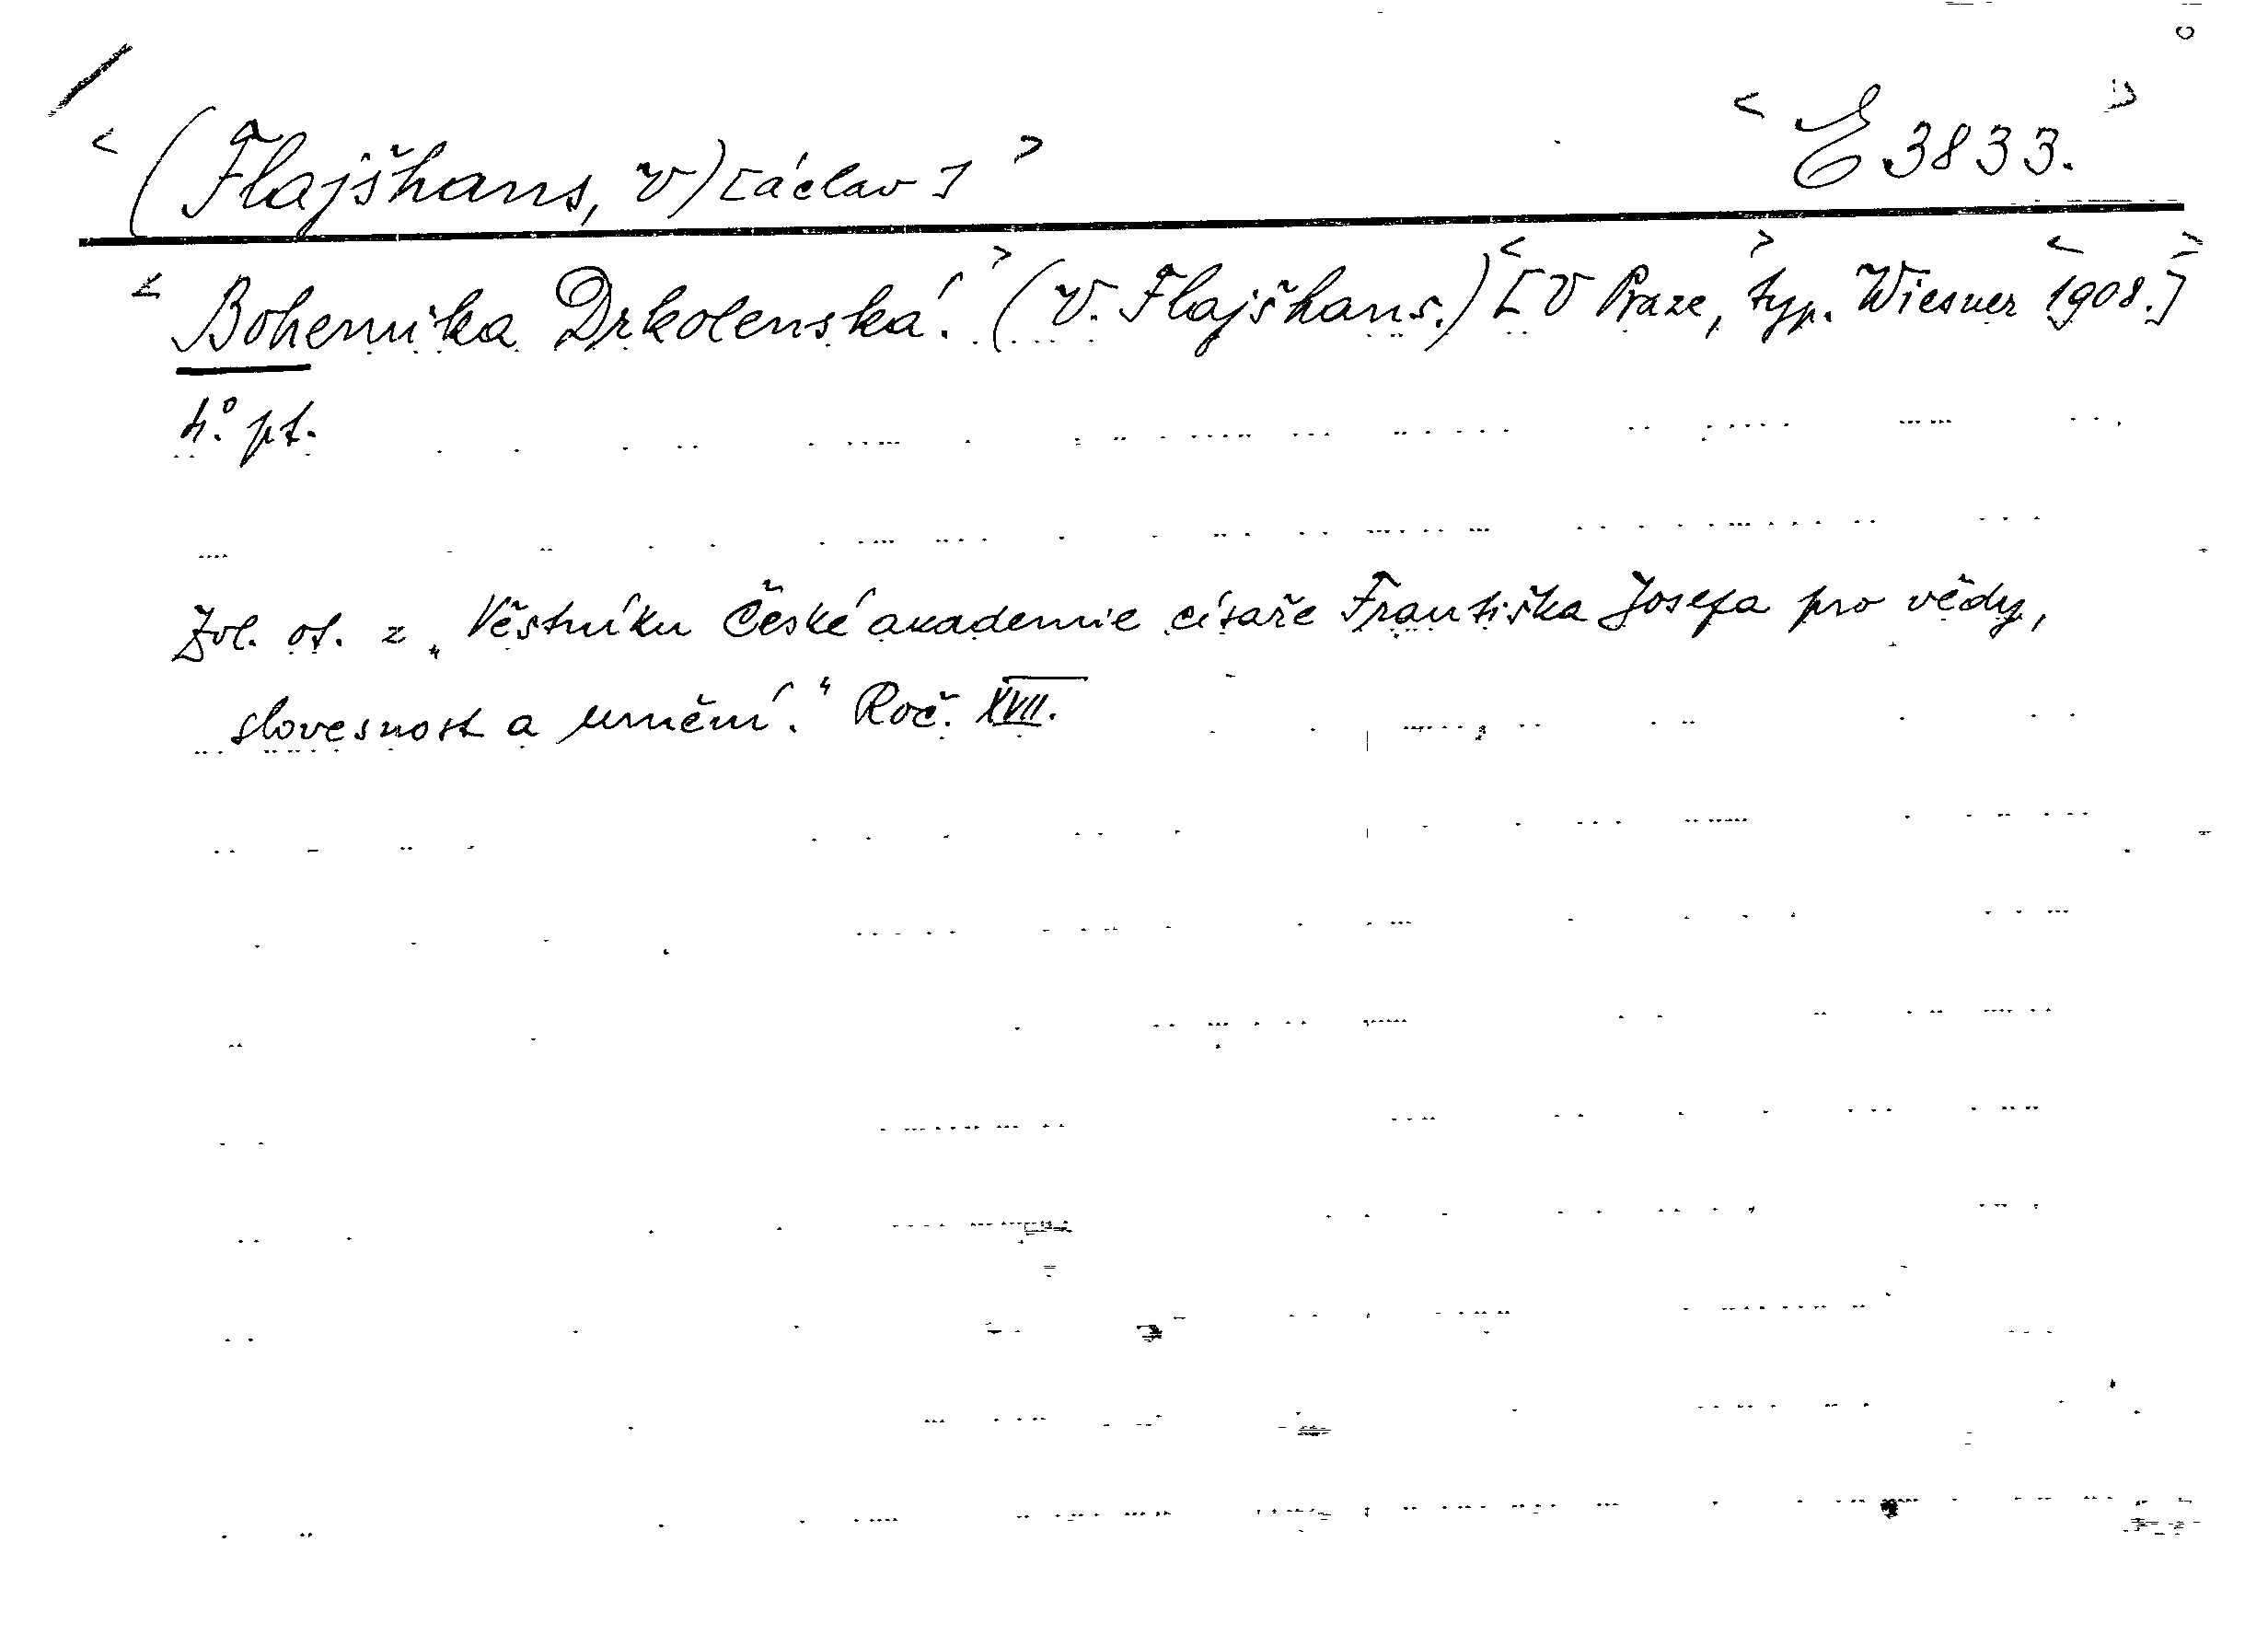 < (Flajšhans, V)[áclav] > < E 3833. >
< Bohemika Drkolenská. > (V. Flajšhans.) < [V Praze, > typ. Wiesner < 1908.] >
4.° pt.
Zvl. ot. z „Věstníku České akademie císaře Františka Josefa pro vědy,
slovesnost a umění.“ Roč. XVII.